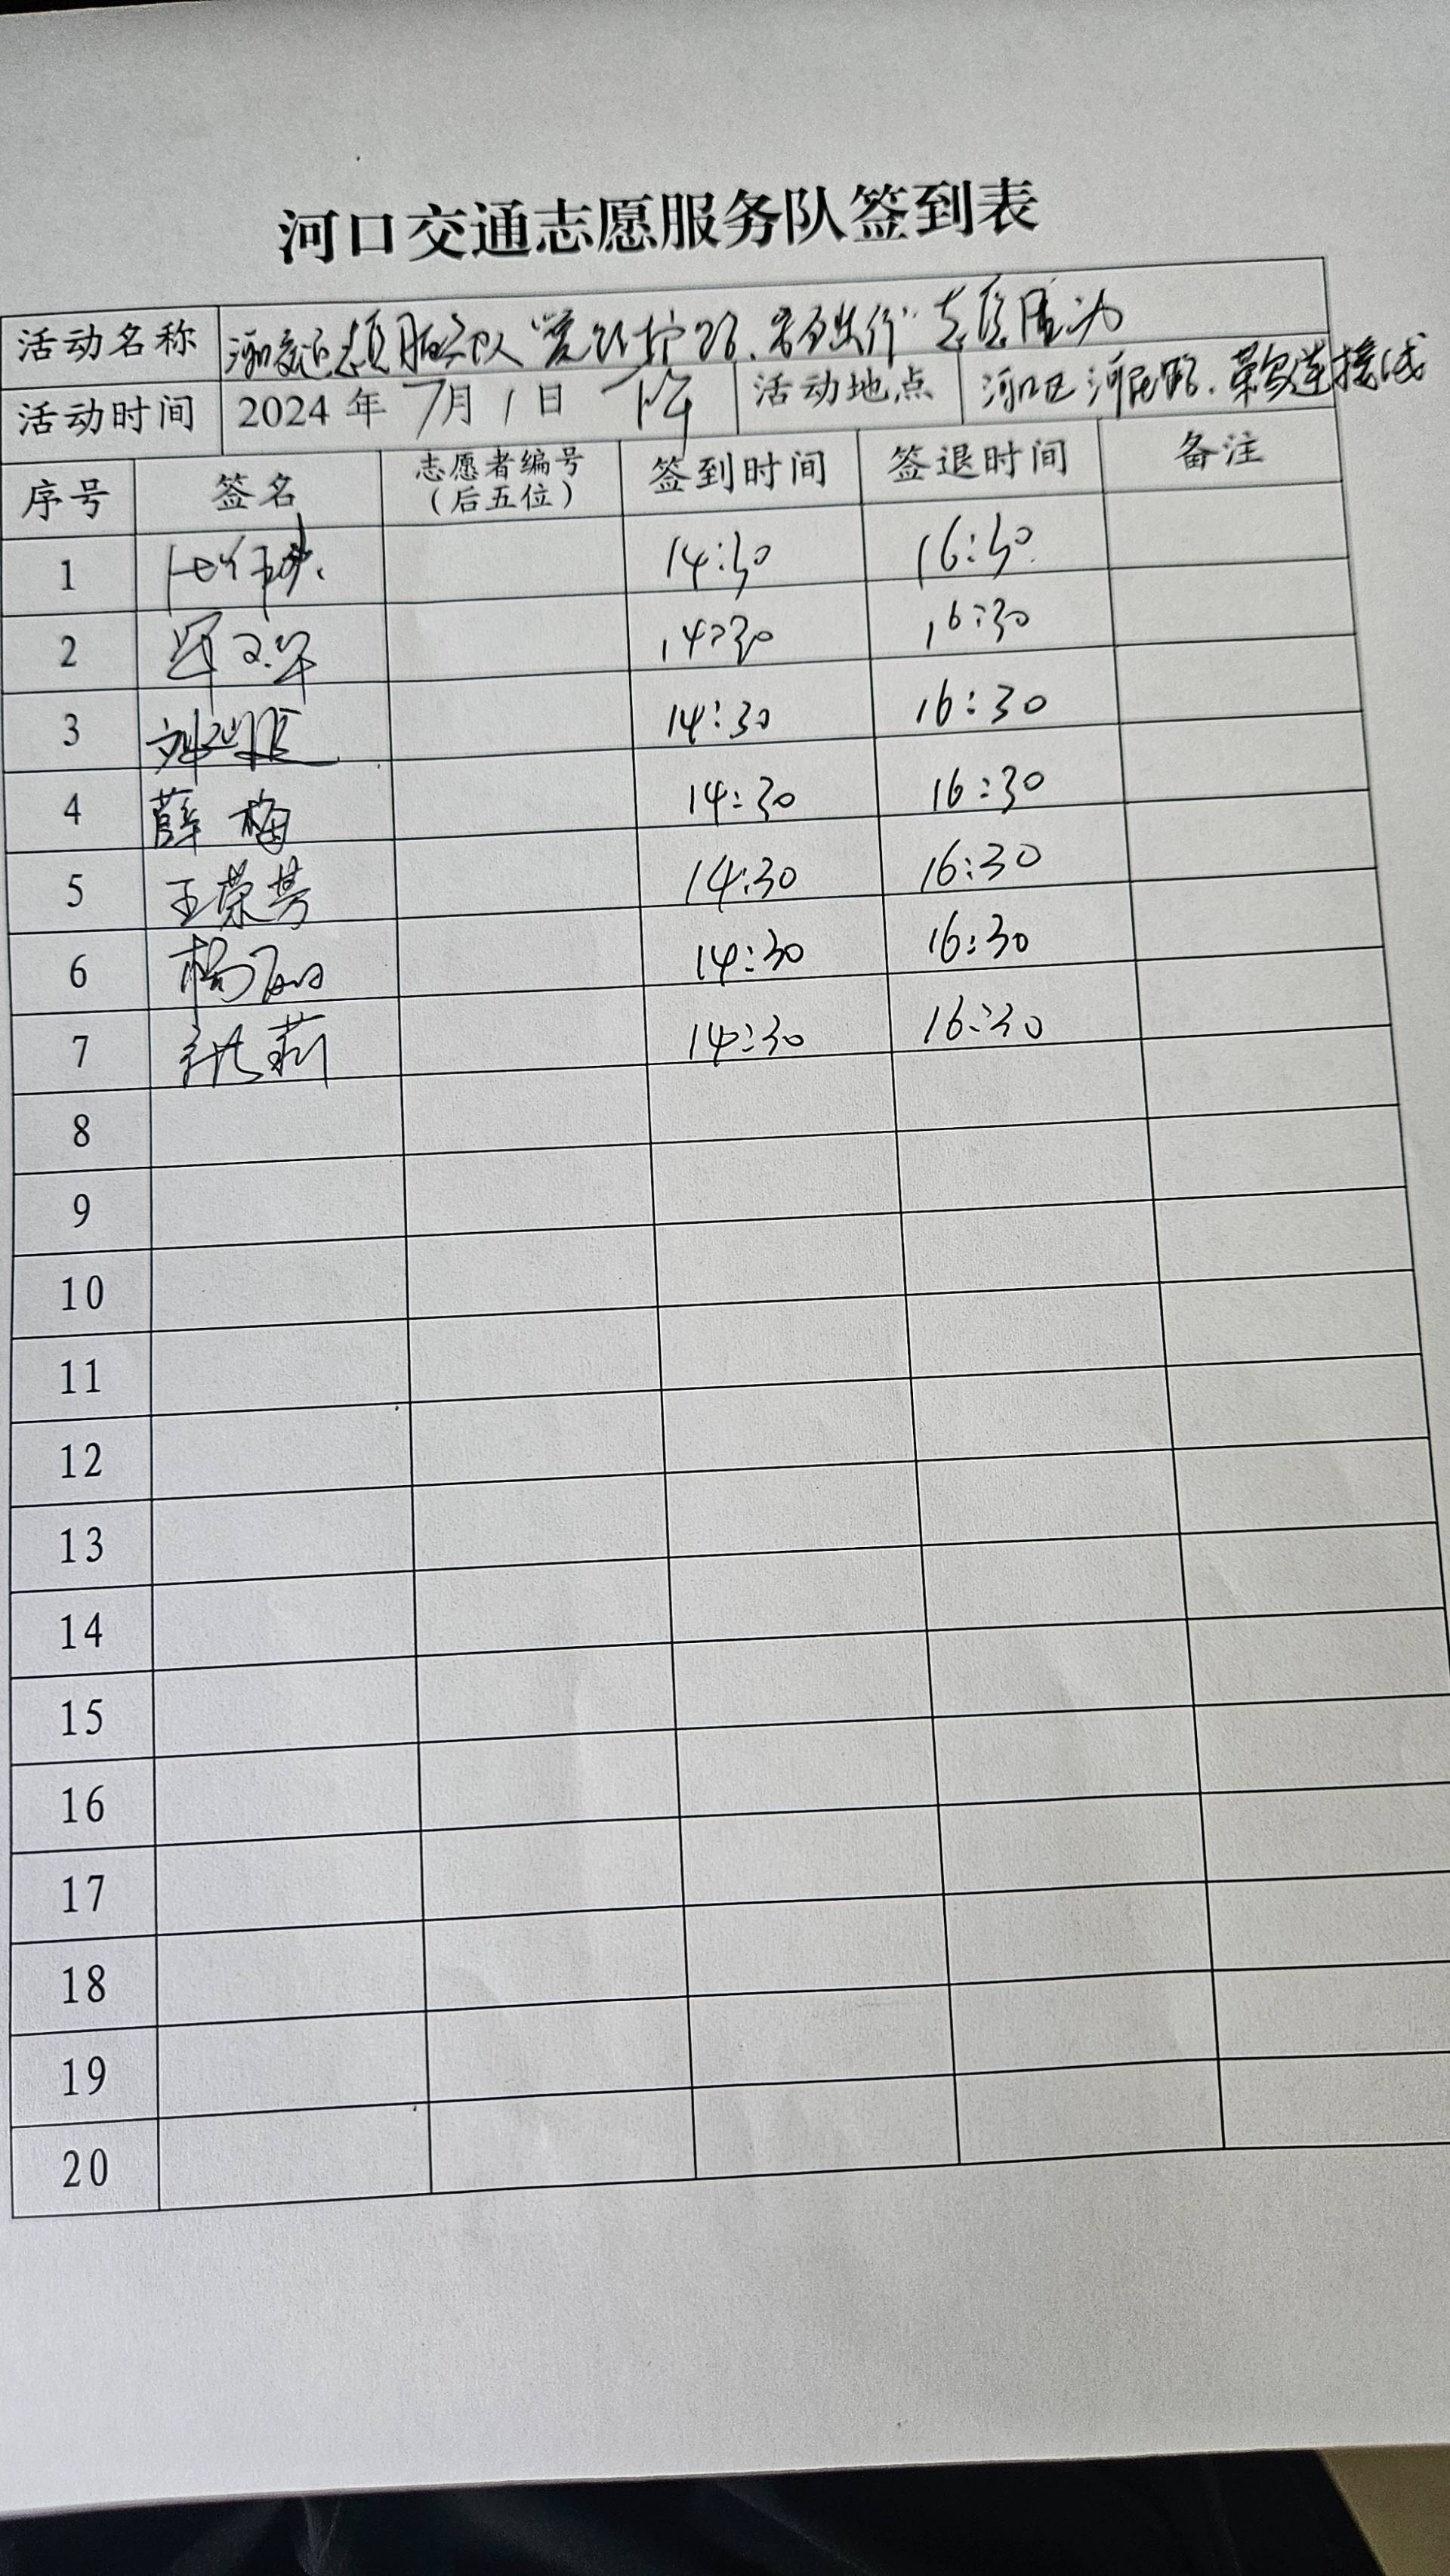 河口交通志愿服务队签到表
活动名称 河口交通志愿服务队"爱路护路、安全出行"志愿活动
活动时间 2024年7月1日 下午 活动地点 河口区河庆路、荣乌连接线
序号 签名 志愿者编号（后五位） 签到时间 签退时间 备注
1 14:30 16:30
2 14:30 16:30
3 14:30 16:30
4 薛梅 14:30 16:30
5 王荣芳 14:30 16:30
6 杨丽 14:30 16:30
7 14:30 16:30
8
9
10
11
12
13
14
15
16
17
18
19
20